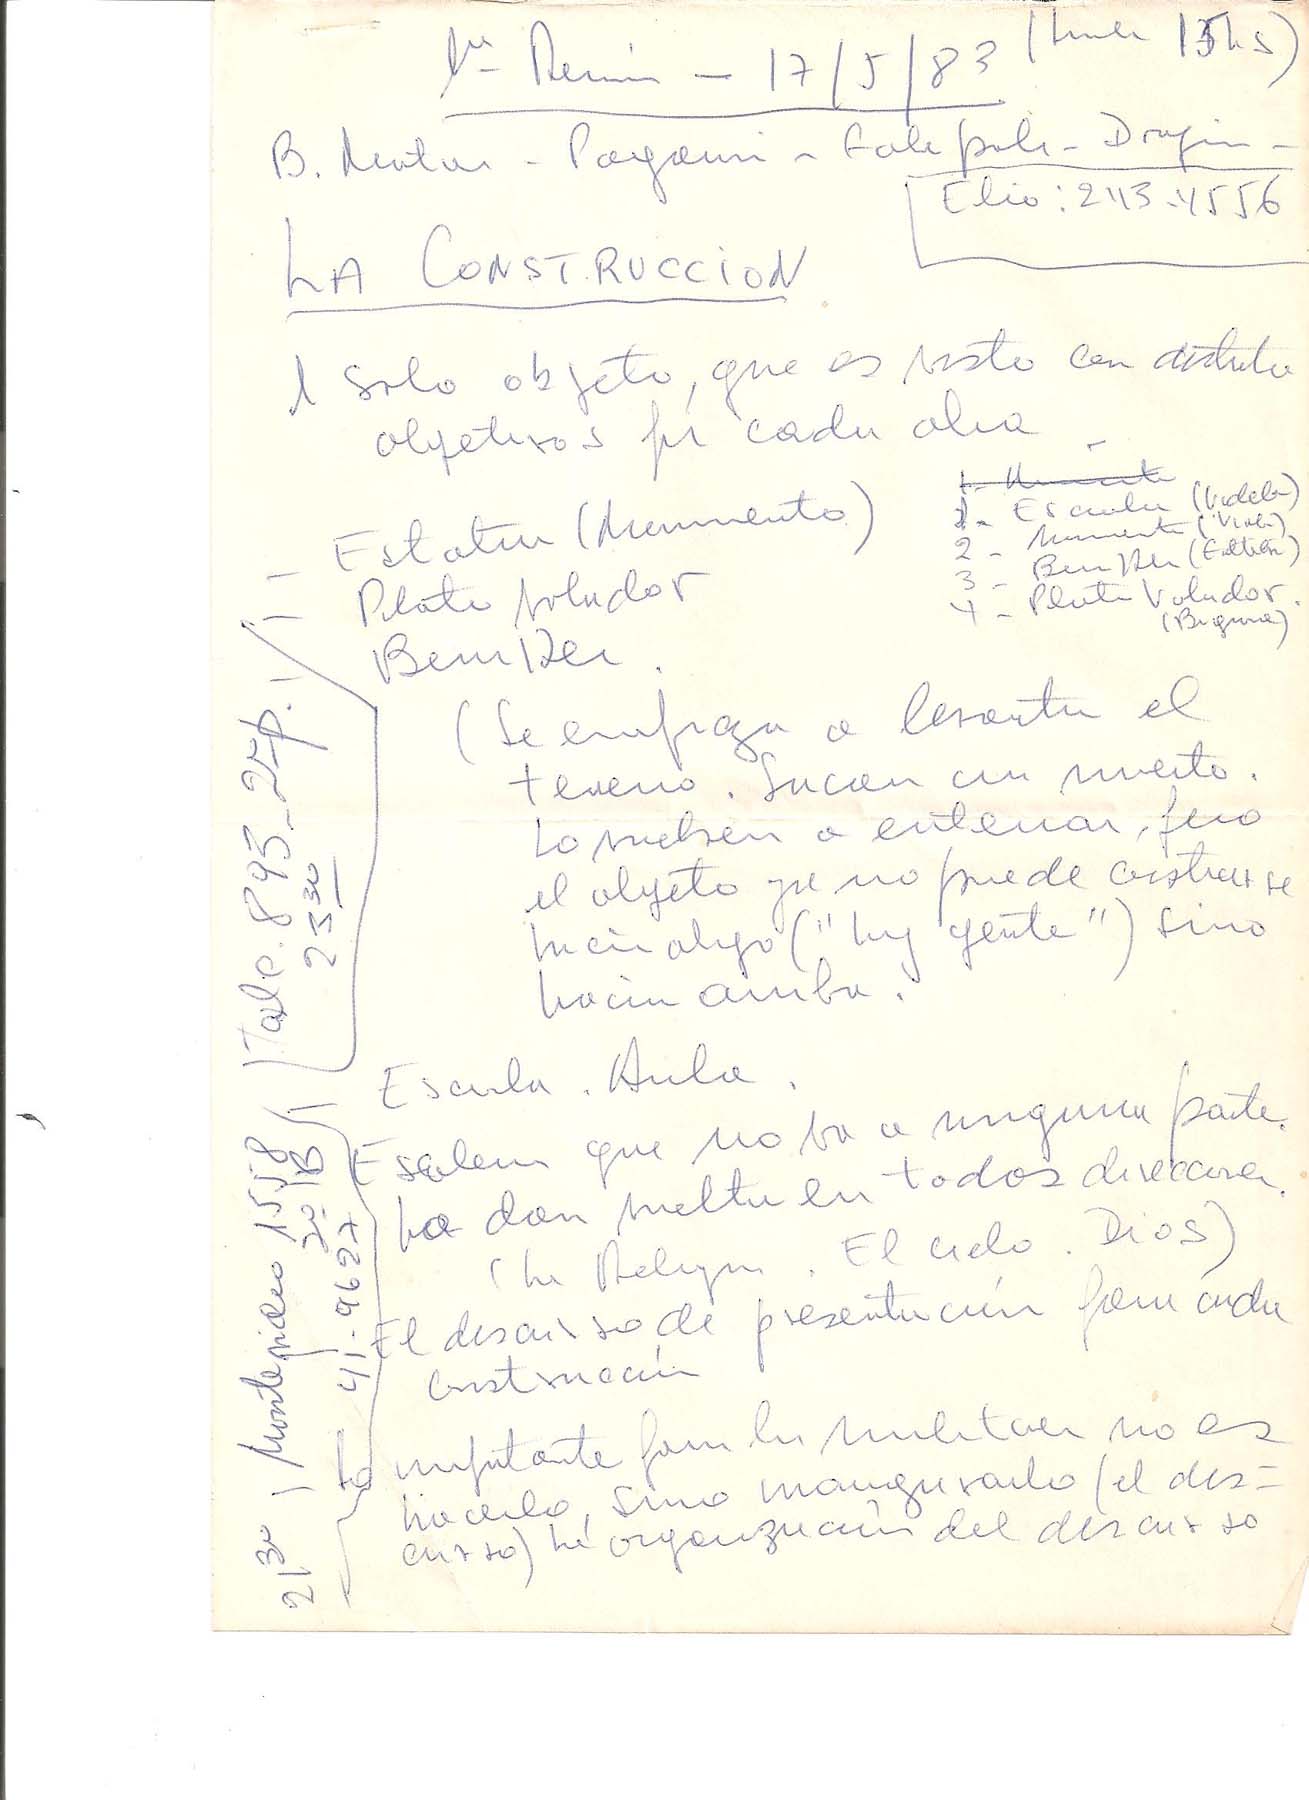 1ra Reunión — 17/5/83 (Lunes 15hs)
B. Matar - Pagani - Gallipoli - Dragún -
Elio: 243-4556
LA CONSTRUCCION
1 solo objeto, que es visto con distintos
objetivos por cada obra
1- Monumento
1- Escuela (Videla)
2- Monumento (Viola)
3- Bunker (Galtieri)
4- Plato Volador.
(Bignone)
Estatua (Monumento)
Plato volador
Bunker.
(Se empieza a levantar el
terreno. Sacan un muerto.
Lo vuelven a enterrar, pero
el objeto ya no puede construirse
hacia abajo ("hay gente") sino
hacia arriba.
Escuela. Aula.
Escalera que no va a ninguna parte.
La dan vuelta en todas direcciones.
(La Religión. El cielo. Dios)
El discurso de presentación para cada
construcción
Lo importante para los militares no es
hacerlo, sino inaugurarlo (el dis=
curso) La organización del discurso
893 - 2º p.
23 30
21 30 Montevideo 1558
2º B
41-9627